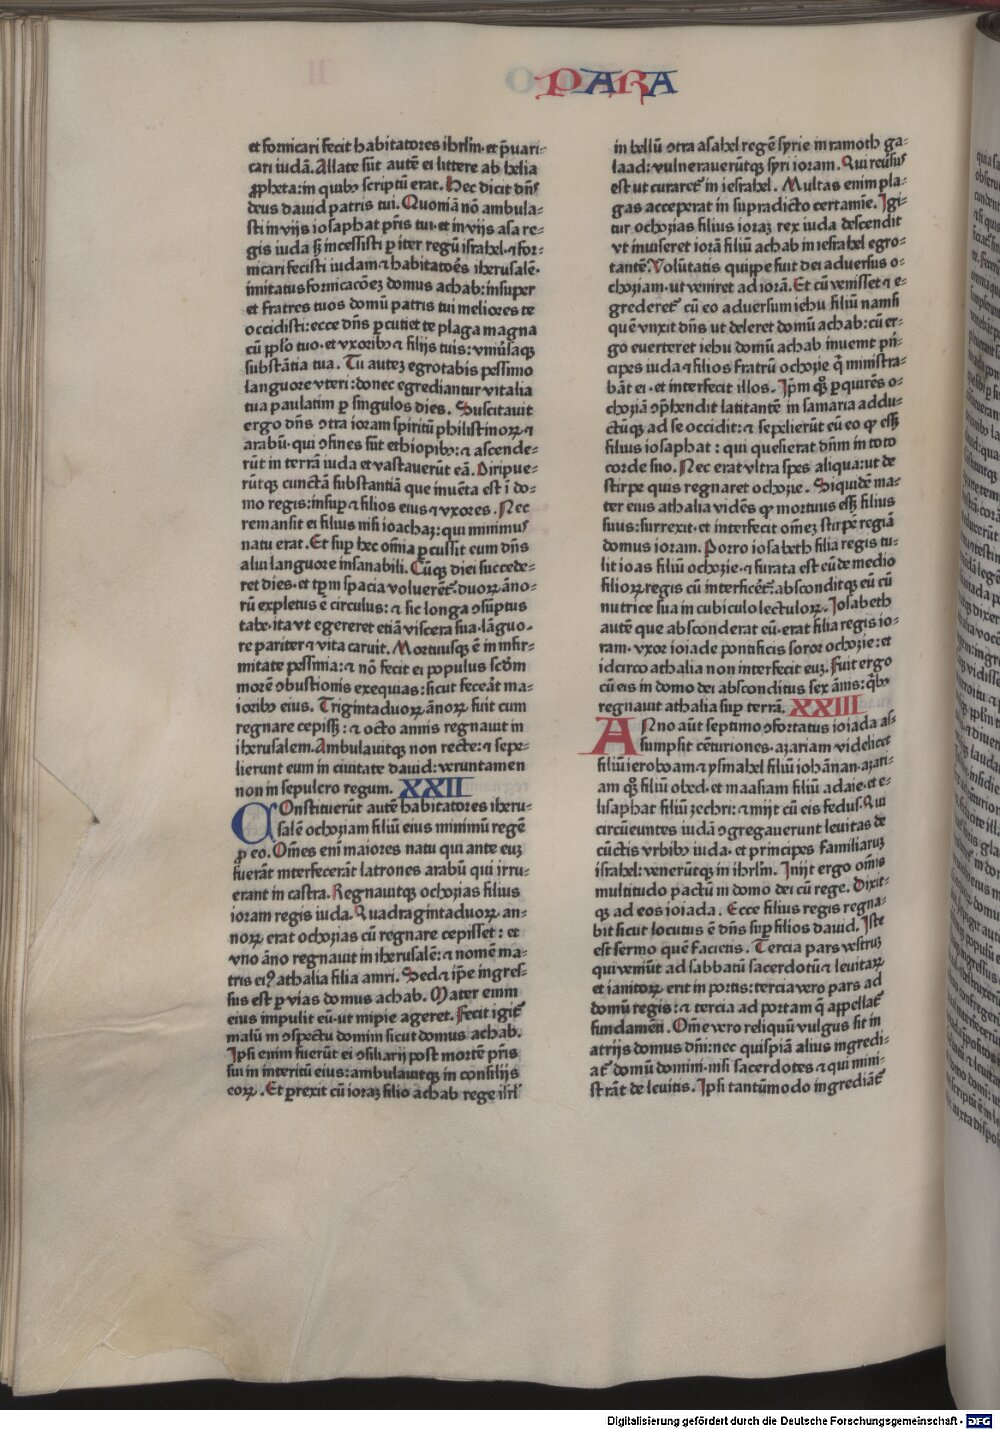 PARA
et fornicari fecit habitatores ihrlm̄·et p̄uari-
cari iudā. Allate sūt autē ei littere ab helia
ꝓpheta:in quibꝰ scriptū erat. Hec dicit dn̄s
deus dauid patris tui. Quoniā nō ambula-
sti in vijs iosaphat pr̄is tui·et in vijs asa re-
gis iuda sꝫ incessisti ꝑ iter regū israhel·⁊ for-
nicari fecisti iudam ⁊ habitatoēs iherusalē·
imitatus fornicacōeꝫ domus achab:insuper
et fratres tuos domū patris tui meliores te
occidisti:ecce dn̄s ꝑcutiet te plaga magna
cū pp̄lo tuo·et vxoribꝰ ⁊ filijs tuis:vniūsaqꝫ
substātia tua. Tu auteꝫ egrotabis pessimo
languore vteri:donec egrediantur vitalia
tua paulatim ꝑ singulos dies. Suscitauit
ergo dn̄s ꝯtra ioram spiritū philistinoꝝ ⁊
arabū·qui ꝯfines sūt ethiopibꝰ:⁊ ascende-
rūt in terrā iuda et vastauerūt eā. Diripue-
rūtqꝫ cunctā substantiā que inuēta est ī do-
mo regis:insuꝑ ⁊ filios eius ⁊ vxores. Nec
remansit ei filius nisi ioachaꝫ:qui minimus
natu erat. Et suꝑ hec om̄ia ꝑcussit eum dn̄s
alui languore insanabili. Cūqꝫ diei succede-
ret dies·et tꝑm spacia voluerēt᷑·duoꝝ āno-
rū expletus ē circulus:⁊ sic longa ꝯsūptus
tabe·ita vt egereret etiā viscera sua·lāguo-
re pariter ⁊ vita caruit. Mortuusqꝫ ē in infir-
mitate pessima:⁊ nō fecit ei populus scd̄m
morē ꝯbustionis exequias:sicut feceāt ma-
ioribꝰ eius. Trigintaduoꝝ ānoꝝ fuit cum
regnare cepisꝫ:⁊ octo annis regnauit in
iherusalem. Ambulauitqꝫ non recte:⁊ sepe-
lierunt eum in ciuitate dauid:veruntamen
non in sepulcro regum. XXII
COnstituerūt autē habitatores iheru-
salē ochoziam filiū eius minimū regē
ꝓ eo. Om̄es eni᷑ maiores natu qui ante euꝫ
fuerāt interfecerāt latrones arabū qui irru-
erant in castra. Regnauitqꝫ ochozias filius
ioram regis iuda. Quadragintaduoꝝ an-
noꝝ erat ochozias cū regnare cepisset: et
vno āno regnauit in iherusalē:⁊ nomē ma-
tris eiꝰ athalia filia amri. Sed ⁊ ip̄e ingres-
sus est ꝑ vias domus achab. Mater enim
eius impulit eū·ut impie ageret. Fecit igit᷑
malū in ꝯspectu domini sicut domus achab.
Ipsi enim fuerūt ei ꝯsiliarij post mortē pr̄is
sui in interitū eius:ambulauitqꝫ in consilijs
eoꝝ. Et perexit cū ioraꝫ filio achab rege isrl̄
in bellū ꝯtra asahel regē syrie in ramoth ga-
laad:vulnerauerūtqꝫ syri ioram. Qui reūsus
est ut curaret᷑ in iesrahel. Multas enim pla-
gas acceperat in supradicto certamīe. Igi-
tur ochozias filius ioraꝫ rex iuda descendit
vt inuiseret iorā filiū achab in iesrahel egro-
tantē. Volūtatis quippe fuit dei aduersus o-
choziam·ut veniret ad iorā. Et cū venisset ⁊ e-
grederet᷑ cū eo aduersum iehu filiū namsi
quē vnxit dn̄s ut deleret domū achab:cū er-
go euerteret iehu domū achab inuenit pri᷑-
cipes iuda ⁊ filios fratrū ochozie q̄ ministra-
bāt ei·et interfecit illos. Ip̄m qꝫ ꝑquirēs o-
choziā ꝯp̄hendit latitantē in samaria addu-
ctūqꝫ ad se occidit:⁊ sepelierūt eū eo ꝙ essꝫ
filius iosaphat: qui quesierat dn̄m in toto
corde suo. Nec erat vltra spes aliqua:ut de
stirpe quis regnaret ochozie. Siquidē ma-
ter eius athalia vidēs ꝙ mortuus essꝫ filius
suus:surrexit·et interfecit omēꝫ stirpē regiā
domus ioram. Porro iosabeth filia regis tu-
lit ioas filiū ochozie·⁊ furata est eū de medio
filioꝝ regis cū interficēt᷑:absconditqꝫ eū cū
nutrice sua in cubiculo lectuloꝝ. Iosabeth
autē que absconderat eū·erat filia regis io-
ram·vxor ioiade pontificis soror ochozie:et
idcirco athalia non interfecit euꝫ. Fuit ergo
cū eis in domo dei absconditus sex ānis:q̄bꝰ
regnauit athalia suꝑ terrā. XXIII
ANno aūt septimo ꝯfortatus ioiada as-
sumpsit cēturiones·azariam videlicet
filiū ieroboam ⁊ ysmahel filiū iohānan·azari-
am qꝫ filiū obed·et maasiam filiū adaie·et e-
lisaphat filiū zechri:⁊ inijt cū eis fedus. Qui
circūeuntes iudā ꝯgregauerunt leuitas de
cūctis vrbibꝰ iuda·et principes familiaruꝫ
israhel:venerūtqꝫ in ihrlm̄. Inijt ergo om̄is
multitudo pactū in domo dei cū rege. Dixit-
qꝫ ad eos ioiada. Ecce filius regis regna-
bit sicut locutus ē dn̄s suꝑ filios dauid. Iste
est sermo quē facietis. Tercia pars vestruꝫ
qui veniūt ad sabbatū sacerdotū ⁊ leuitaꝝ
et ianitoꝝ erit in portis:tercia vero pars ad
domū regis:⁊ tercia ad portam q̄ appellat᷑
fundamēti. Om̄e vero reliquū vulgus sit in
atrijs domus dn̄i:nec quispiā alius ingredi-
at᷑ domū domini·nisi sacerdotes ⁊ qui mini-
strāt de leuitis. Ipsi tantūmodo ingrediāt᷑
Digitalisierung gefördert durch die Deutsche Forschungsgemeinschaft - DFG